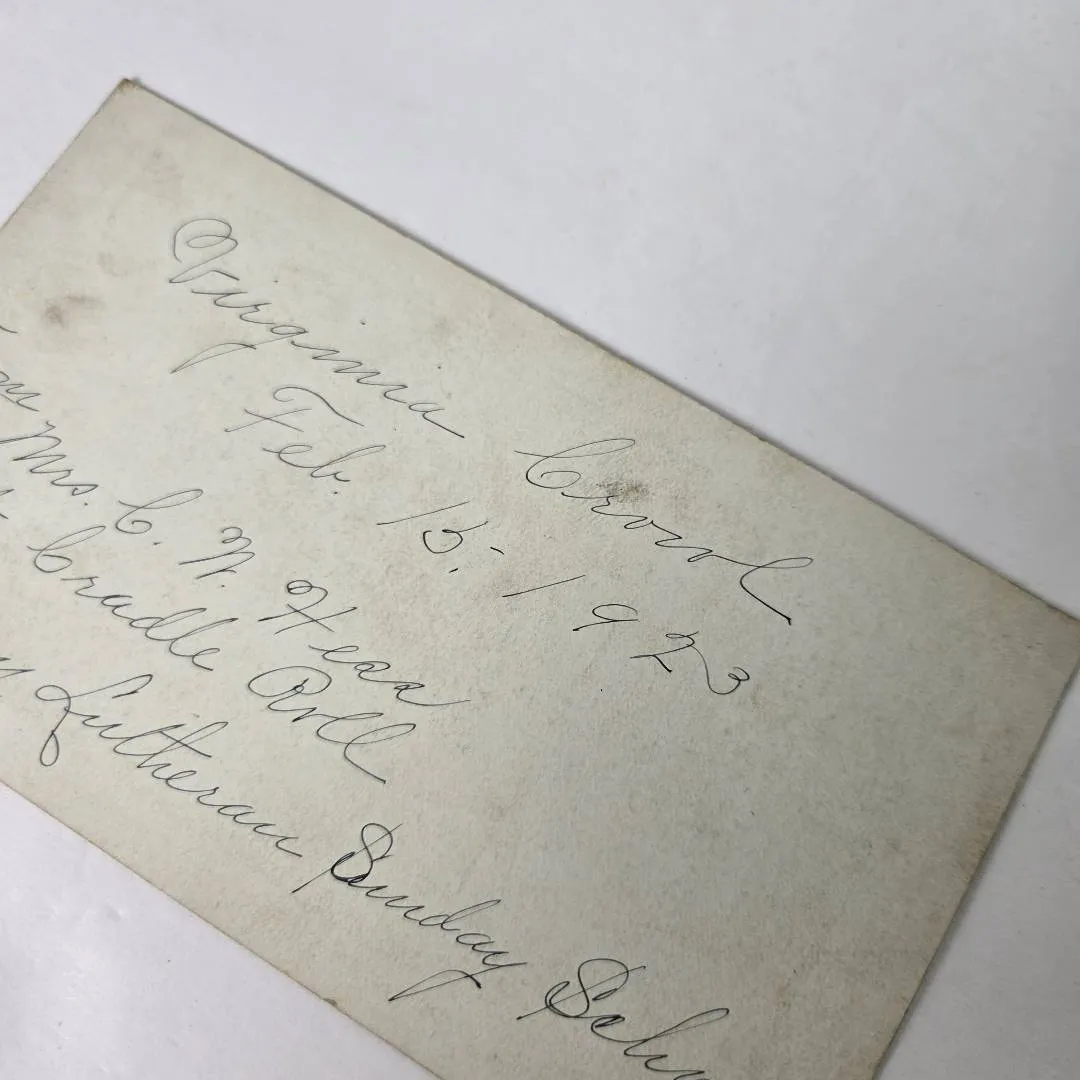 Virginia Crowl
Feb. 15. 1923
Mrs. C. W. Hess
Cradle Roll
Lutheran Sunday